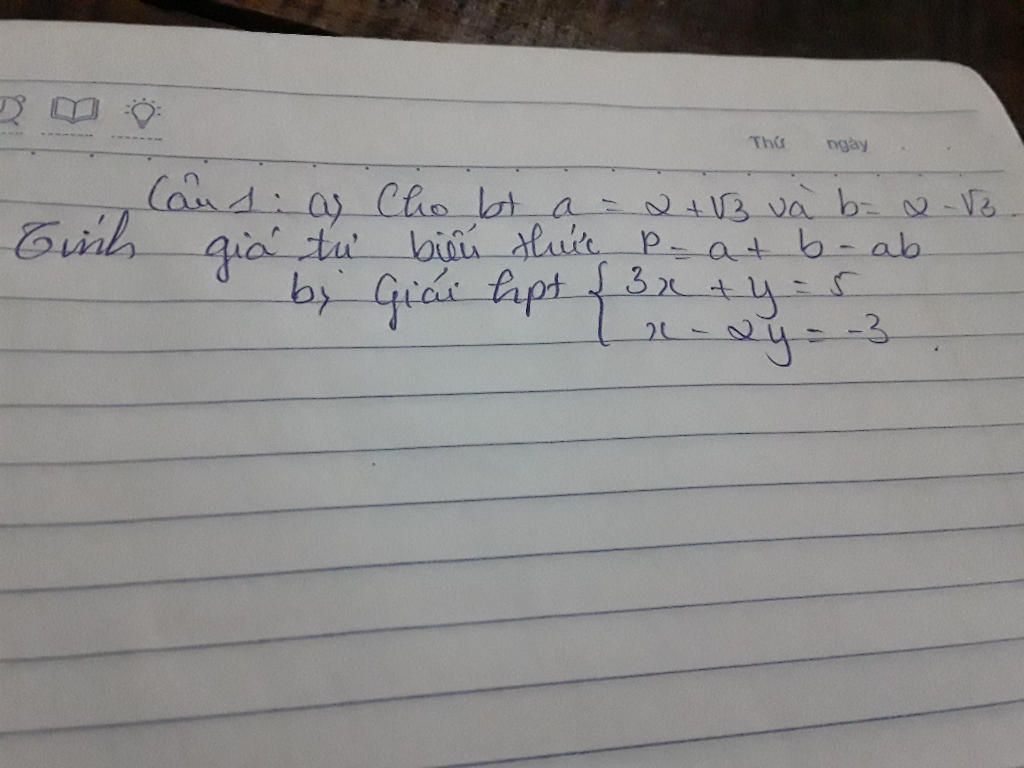 Thứ ngày
Câu 1: a) Cho bt a = 2 + √3 và b = 2 - √3.
Tính giá trị biểu thức P = a + b - ab
b) Giải hpt { 3x + y = 5
x - 2y = -3